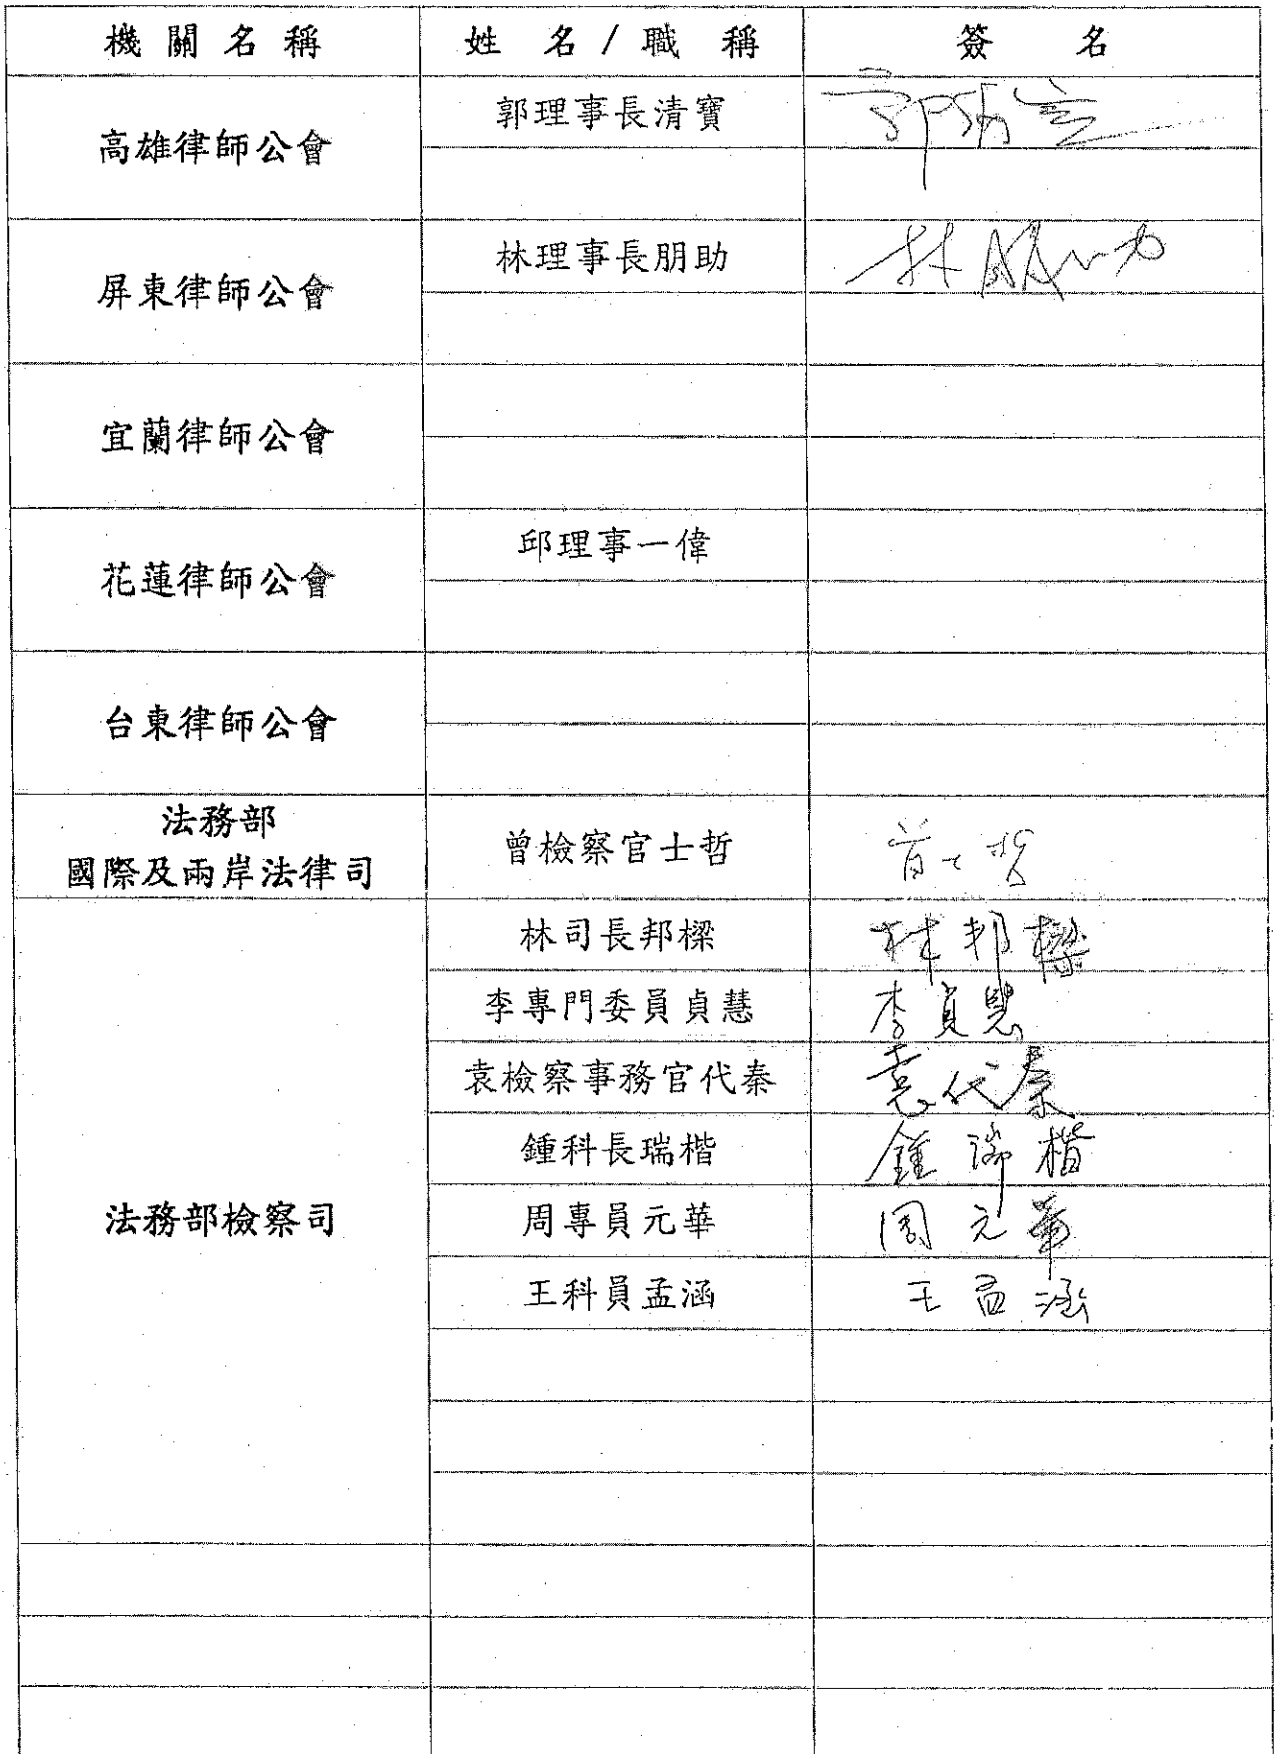 機關名稱 姓名/職稱 簽名
高雄律師公會 郭理事長清寶 郭清寶
屏東律師公會 林理事長朋助 林朋助
宜蘭律師公會
花蓮律師公會 邱理事一偉
台東律師公會
法務部
國際及兩岸法律司 曾檢察官士哲 曾士哲
林司長邦樑 林邦樑
李專門委員貞慧 李貞慧
袁檢察事務官代秦 袁代秦
鍾科長瑞楷 鍾瑞楷
法務部檢察司 周專員元華 周元華
王科員孟涵 王孟涵